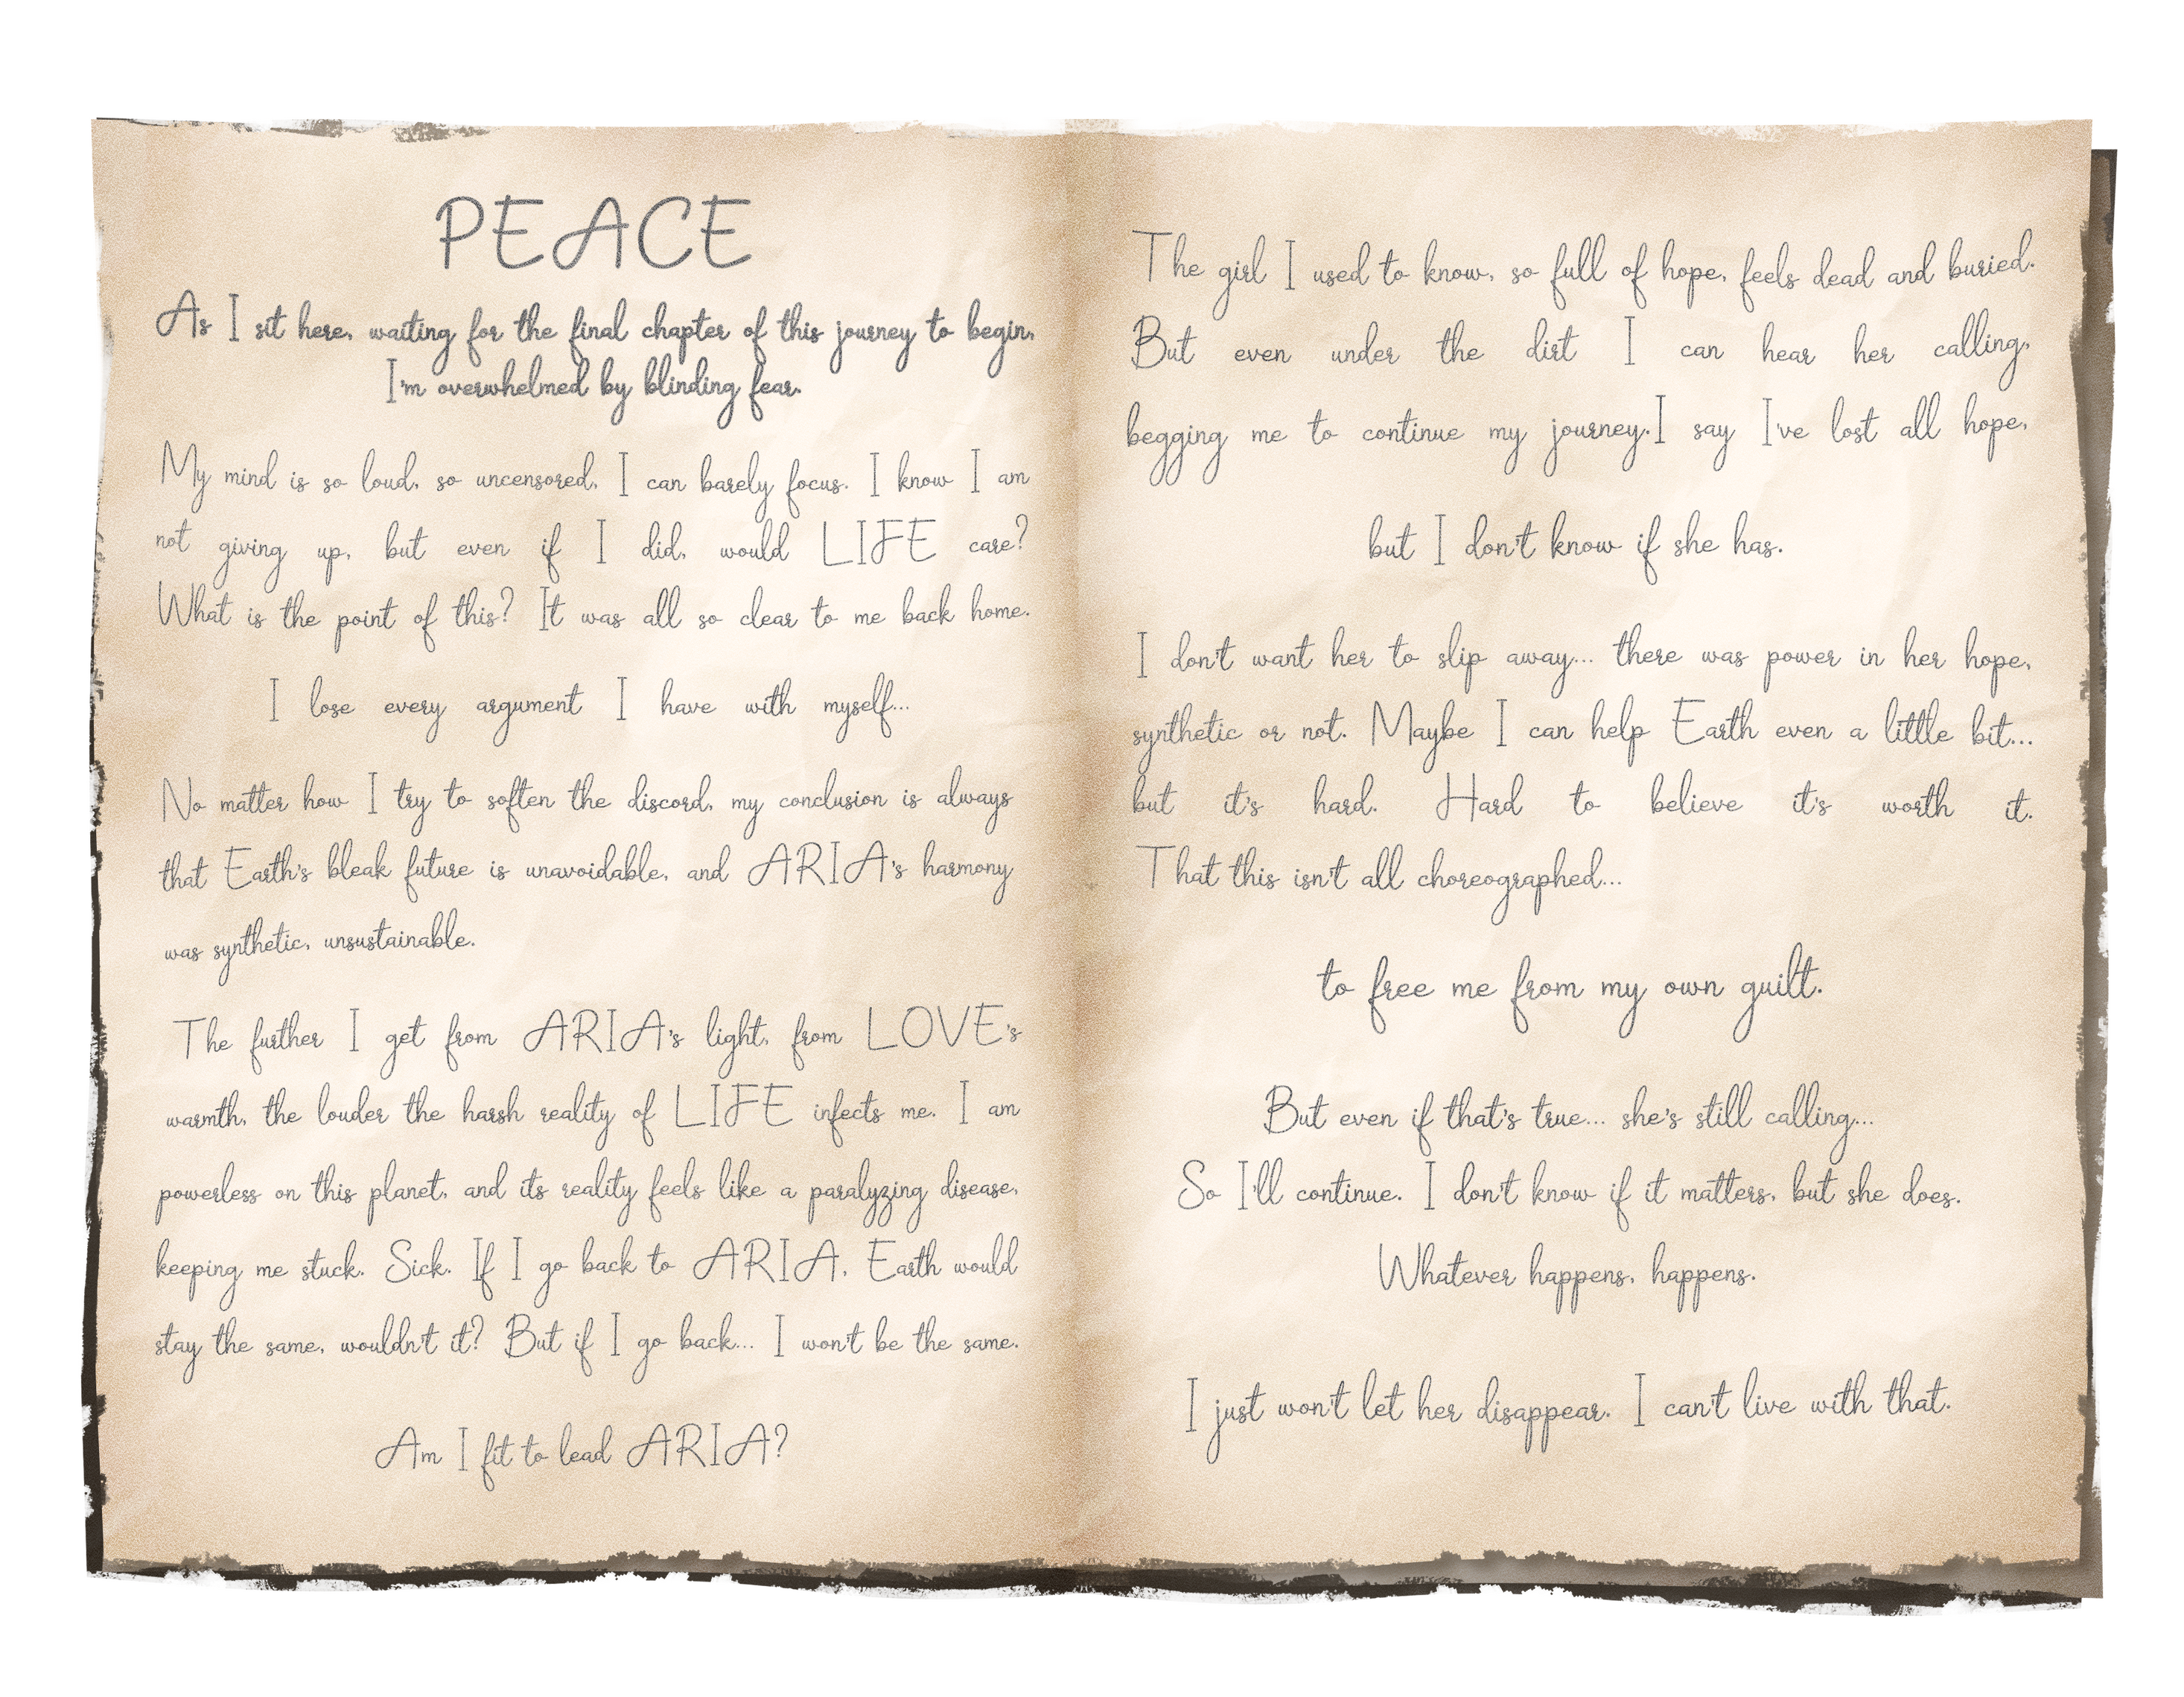 PEACE
As I sit here, waiting for the final chapter of this journey to begin,
I'm overwhelmed by blinding fear.
My mind is so loud, so uncensored, I can barely focus. I know I am
not giving up, but even if I did, would LIFE care?
What is the point of this? It was all so clear to me back home.
I lose every argument I have with myself...
No matter how I try to soften the discord, my conclusion is always
that Earth's bleak future is unavoidable, and ARIA's harmony
was synthetic, unsustainable.
The further I get from ARIA's light, from LOVE's
warmth, the louder the harsh reality of LIFE infects me. I am
powerless on this planet, and its reality feels like a paralyzing disease,
keeping me stuck. Sick. If I go back to ARIA, Earth would
stay the same, wouldn't it? But if I go back... I won't be the same.
Am I fit to lead ARIA?
The girl I used to know, so full of hope, feels dead and buried.
But even under the dirt I can hear her calling,
begging me to continue my journey.I say I've lost all hope,
but I don't know if she has.
I don't want her to slip away... there was power in her hope,
synthetic or not. Maybe I can help Earth even a little bit...
but it's hard. Hard to believe it's worth it.
That this isn't all choreographed...
to free me from my own guilt.
But even if that's true... she's still calling...
So I'll continue. I don't know if it matters, but she does.
Whatever happens, happens.
I just won't let her disappear. I can't live with that.